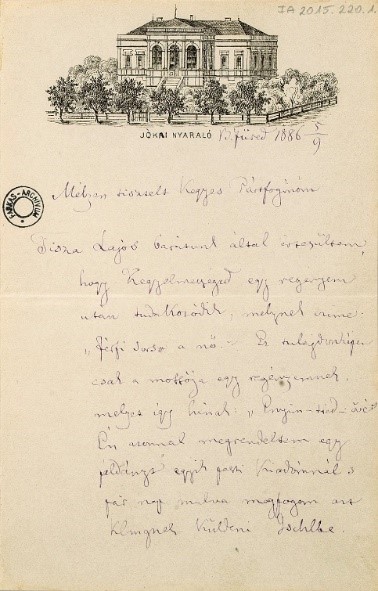 JA 2015.220.1.
JÓKAI NYARALÓ B. füred 1886 5/9
FARKAS-ARCHIVUM
Mélyen tisztelt Kegyes Pártfogónőm
Tisza Lajos barátunk által értesültem,
hogy Kegyelmességed egy regényem
után tudakozódik, melynek címe:
„Férfi sorsa a nő." Ez tulajdonképen
csak a mottója egy regényemnek,
melyet így hinak:
Én azonnal megrendeltem egy
példányt egyik pesti Kiadómnál s
pár nap mulva megfogom azt
küldeni Ischlbe.